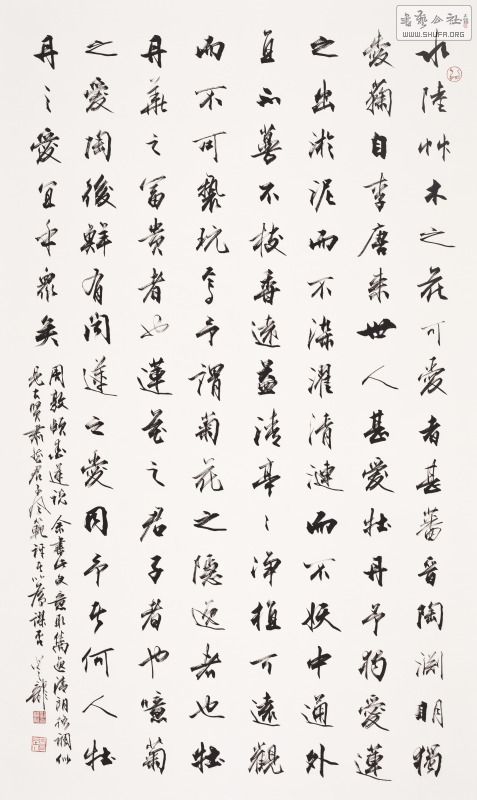 水陸艸木之花可愛者甚蕃晉陶淵明獨
愛菊自李唐来世人甚愛牡丹予独愛蓮
之出淤泥而不染濯清漣而不妖中通外
直不蔓不枝香遠益清亭亭淨植可遠觀
而不可褻玩焉予謂菊花之隱逸者也牡
丹華之富貴者也蓮花之君子者也噫菊
之愛陶後鮮有聞蓮之愛同予者何人牡
丹之愛宜乎衆矣
周敦頤愛蓮说 余書此文
書藝公社
WWW.SHUFA.ORG